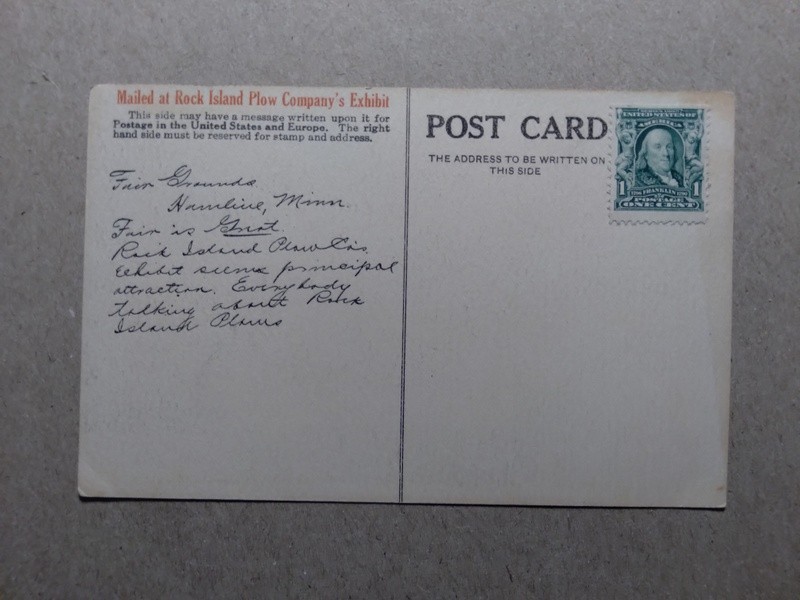 Mailed at Rock Island Plow Company's Exhibit
This side may have a message written upon it for
Postage in the United States and Europe. The right
hand side must be reserved for stamp and address.
Fair Grounds
Hamline, Minn.
Fair is Great.
Rock Island Plow Co's.
exhibit seems principal
attraction. Everybody
talking about Rock
Island Plows
POST CARD
THE ADDRESS TO BE WRITTEN ON
THIS SIDE
UNITED STATES OF
AMERICA
1 FRANKLIN 1
POSTAGE
ONE CENT